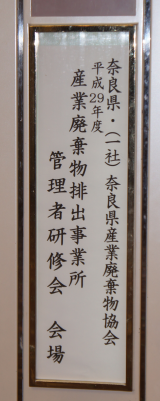 奈良県・(一社)奈良県産業廃棄物協会
平成29年度
産業廃棄物排出事業所
管理者研修会 会場